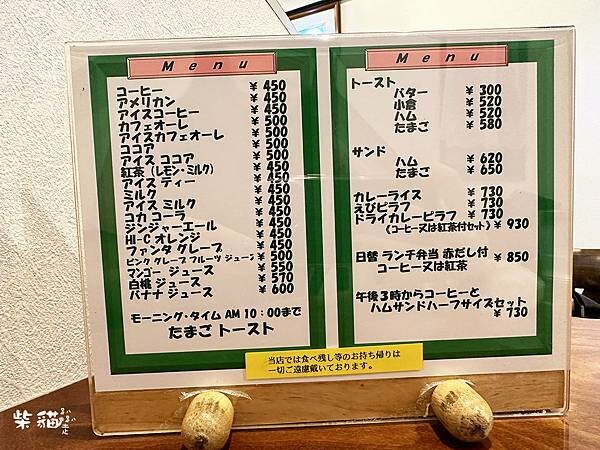 Menu
コーヒー ¥ 450
アメリカン ¥ 450
アイスコーヒー ¥ 450
カフェオーレ ¥ 500
アイスカフェオーレ ¥ 500
ココア ¥ 500
アイス ココア ¥ 500
紅茶（レモン・ミルク） ¥ 450
アイス ティー ¥ 450
ミルク ¥ 450
アイス ミルク ¥ 450
コカ コーラ ¥ 450
ジンジャーエール ¥ 450
HI-C オレンジ ¥ 450
ファンタ グレープ ¥ 450
ピンク グレープ フルーツ ジュース ¥ 500
マンゴー ジュース ¥ 550
白桃 ジュース ¥ 570
バナナ ジュース ¥ 600
モーニング・タイム AM 10：00まで
たまご トースト
Menu
トースト
バター ¥ 300
小倉 ¥ 520
ハム ¥ 520
たまご ¥ 580
サンド
ハム ¥ 620
たまご ¥ 650
カレーライス ¥ 730
えびピラフ ¥ 730
ドライカレーピラフ ¥ 730
《コーヒー又は紅茶付セット》 ¥ 930
日替 ランチ弁当 赤だし付 ¥ 850
コーヒー又は紅茶
午後３時からコーヒーと
ハムサンドハーフサイズセット
¥ 730
当店では食べ残し等のお持ち帰りは
一切ご遠慮戴いております。
柴貓